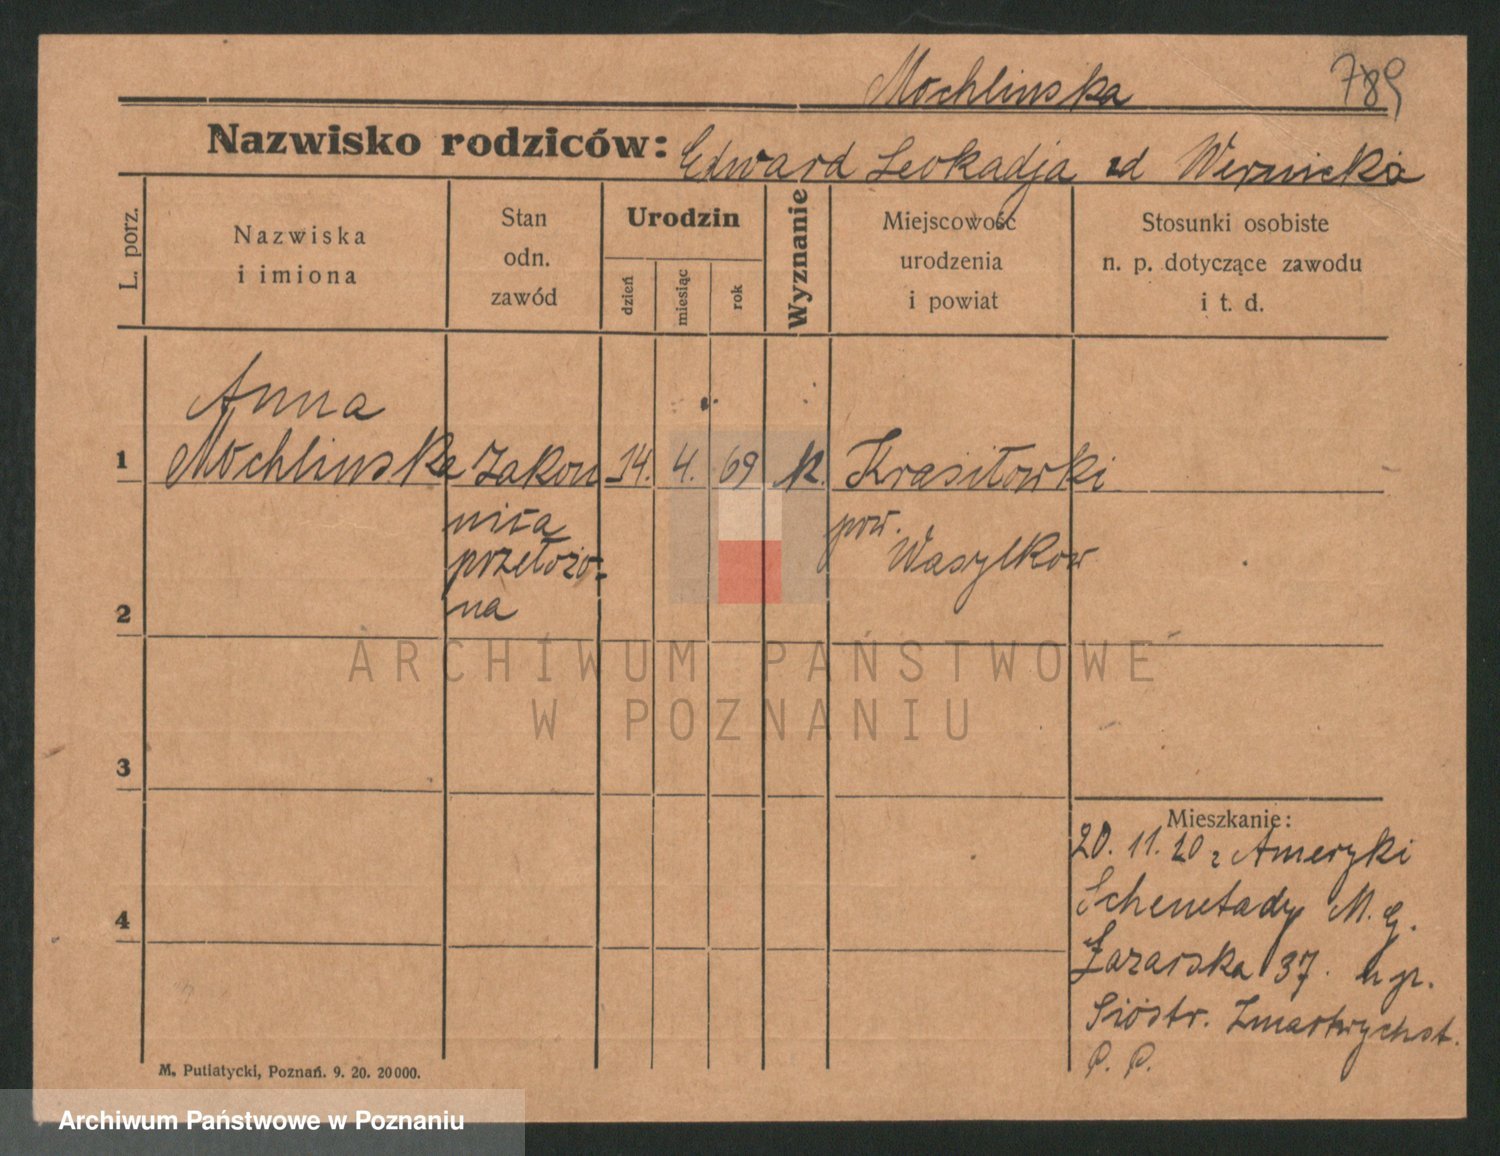 Mochlinska
789
Nazwisko rodziców: Edward Leokadja zd Wernicka
L. porz.
Nazwiska
i imiona
Stan
odn.
zawód
Urodzin
dzień
miesiąc
rok
Wyznanie
Miejscowość
urodzenia
i powiat
Stosunki osobiste
n. p. dotyczące zawodu
i t. d.
Anna
1 Mochlinska Zakon 14. 4. 69 K. Krasiłowki
nica
pow.
przełożo-
Wasylkow
na
2
ARCHIWUM PAŃSTWOWE
W POZNANIU
3
Mieszkanie:
20. 11. 20 z Ameryki
Schenetady M. G.
4
Łazarska 37. u p.
Sióstr. Zmartwychst.
P. P.
M. Putiatycki, Poznań. 9. 20. 20000.
Archiwum Państwowe w Poznaniu